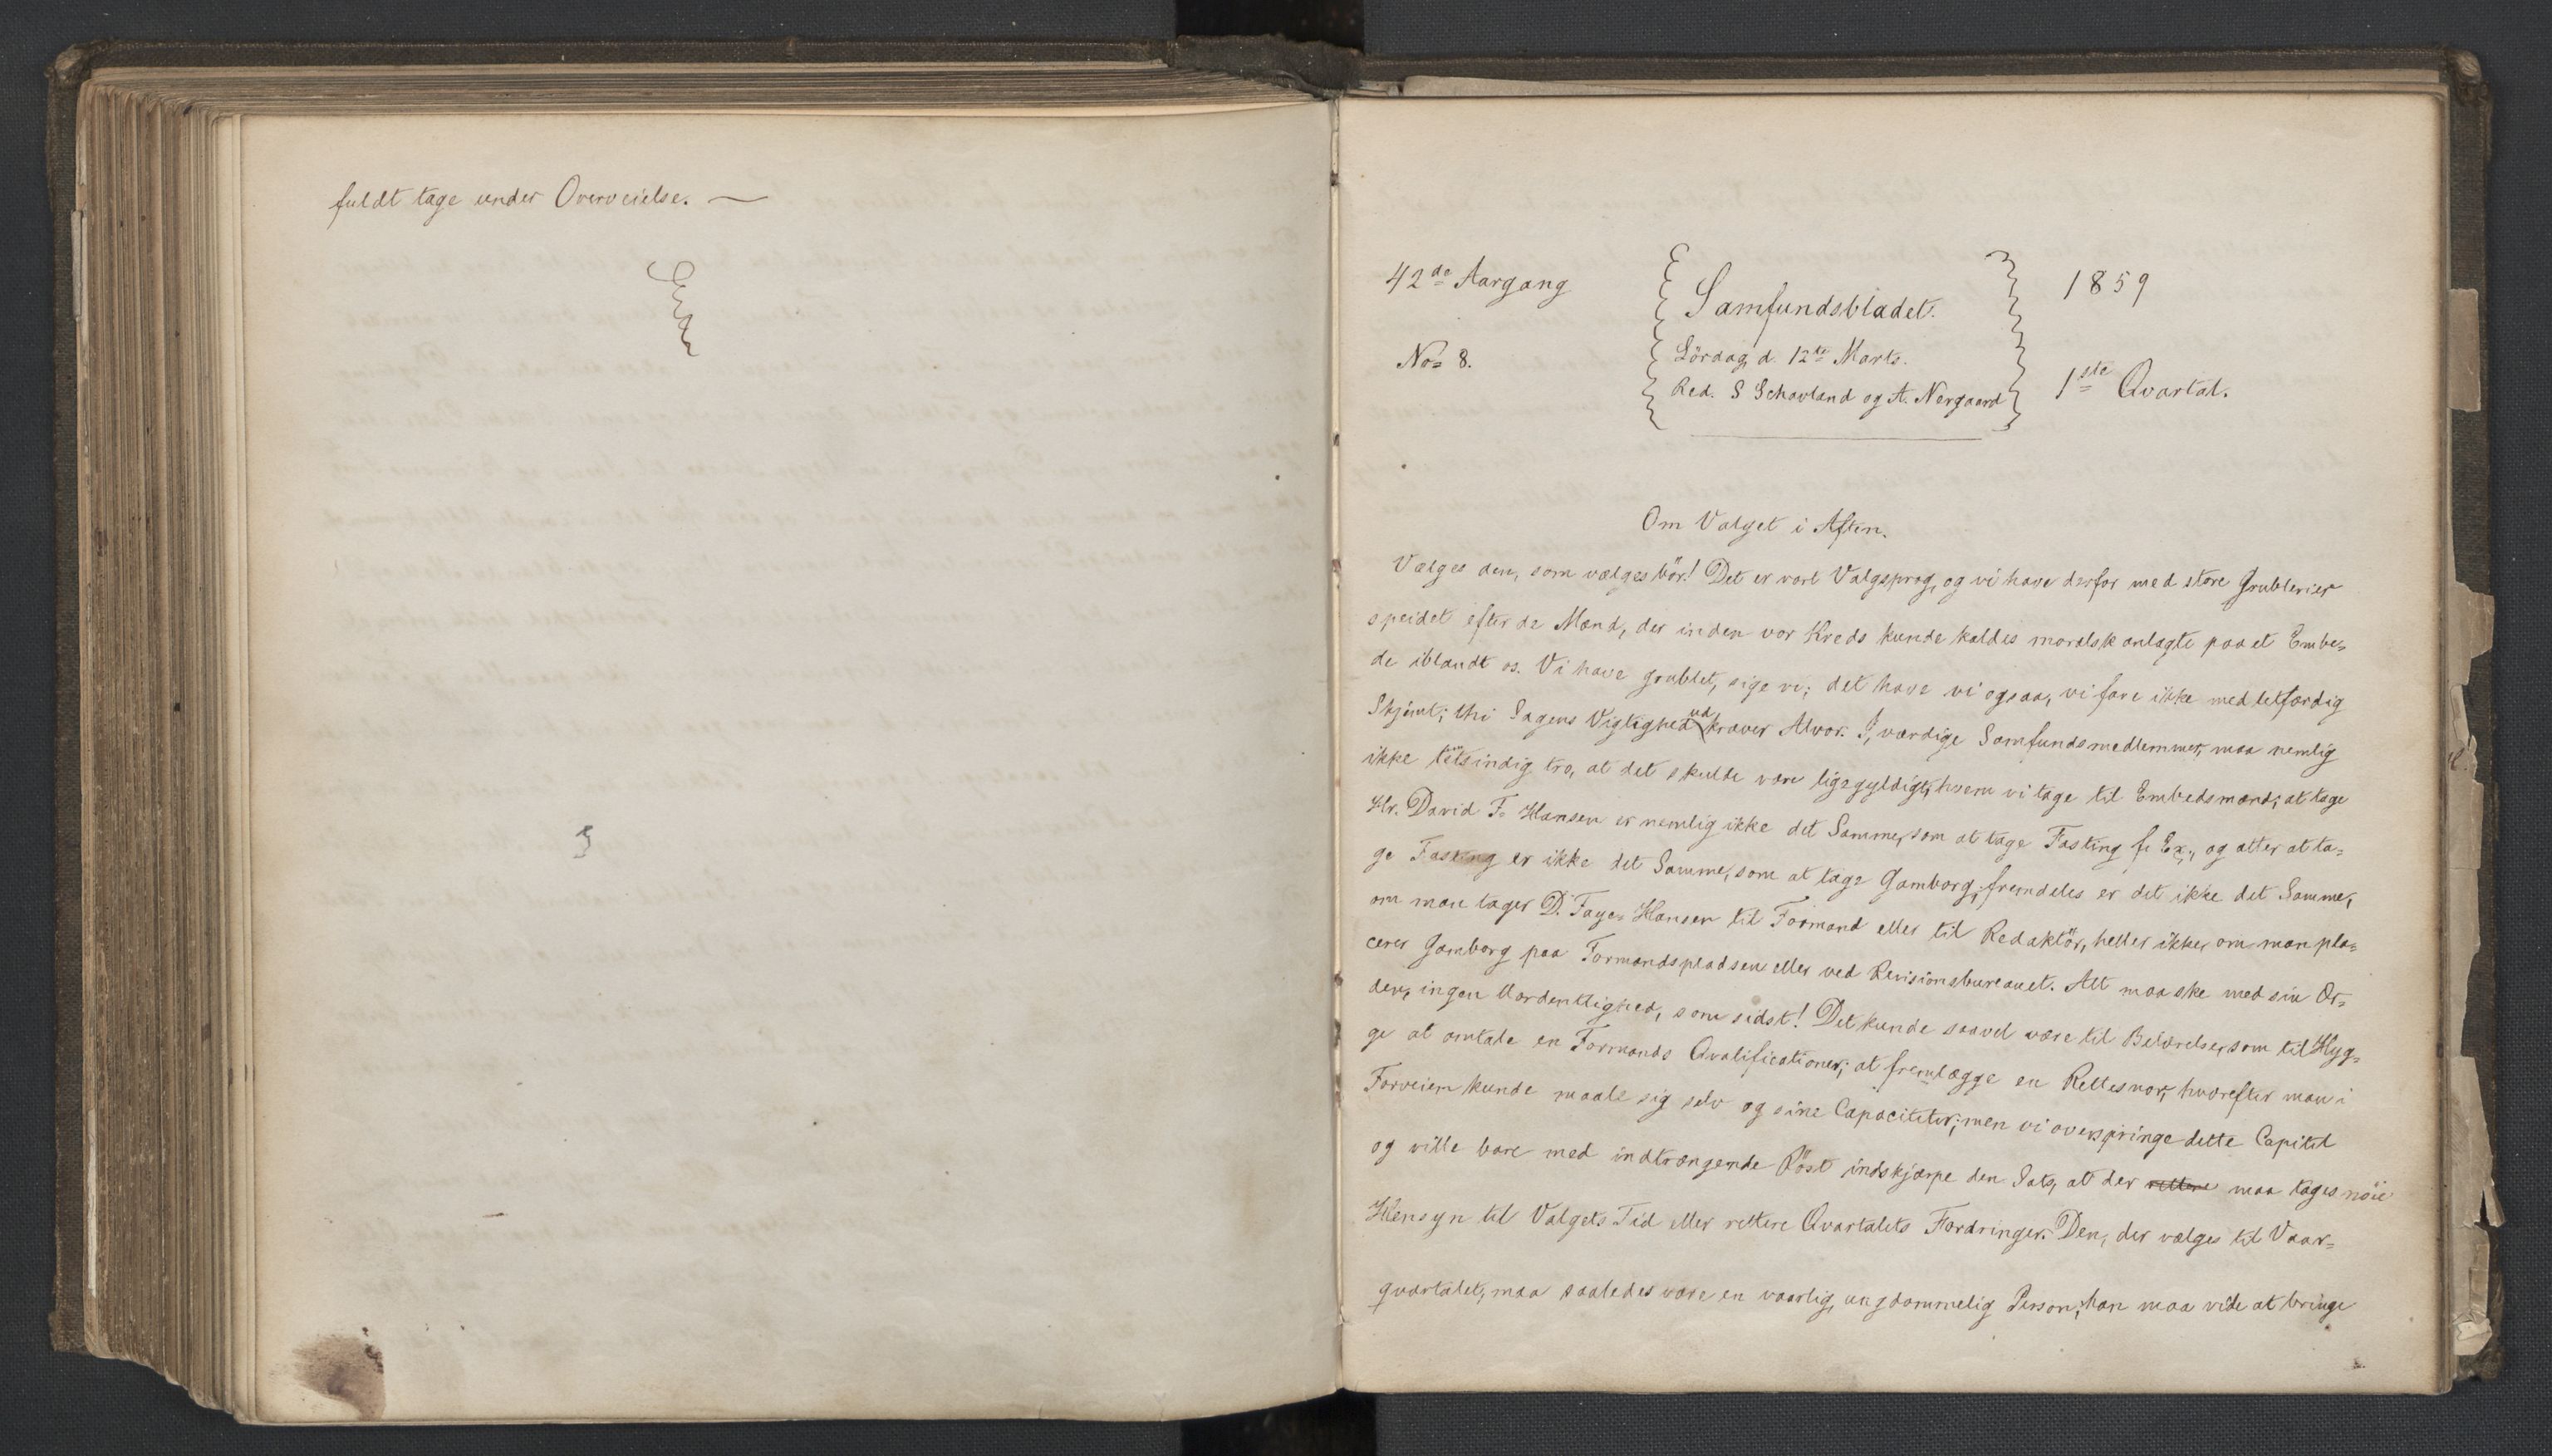 fuldt tage under Overveielse. —
3
42de Aargang
Samfundsbladet.
1859
No= 8.
Lördag d. 12te Marts.
Red. S Schavland og A. Nergaard
1ste Qvartal.
Om Valget i Aften.
Vælges den, som vælges bör! Det er vort Valgsprog, og vi have derfor med store Grublerier
speidet efter de Mænd, der inden vor Kreds kunde kaldes moralsk anlagte paa et Embe=
de iblandt os. Vi have grublet, sige vi; det have vi ogsaa, vi fare ikke med letfærdig
Skjämt; thi Sagens Vigtighed udkræver Alvor. I, værdige Samfundsmedlemmer, maa nemlig
ikke letsindig tro, at det skulde være ligegyldigt, hvem vi tage til Embedsmænd; at tage
Hr. David F. Hansen er nemlig ikke det Samme, som at tage Fasting f. Ex., og atter at ta=
ge Fasting er ikke det Samme, som at tage Gamborg; fremdeles er det ikke det Samme,
om man tager D. Faye-Hansen til Formand eller til Redaktör, heller ikke, om man pla=
cerer Gamborg paa Formandspladsen eller ved Revisionsbureauet. Alt maa ske med sin Or=
den, ingen Uordentlighed, som sidst! Det kunde saavel være til Belærelse, som til Hyg=
ge at omtale en Formands Qvalificationer; at fremlægge en Rettesnor, hvorefter man i
Forveien kunde maale sig selv og sine Capaciteter; men vi overspringe dette Capitel
og ville bare med indtrængende Röst indskjærpe den Sats, at der rettere maa tages nöie
Hensyn til Valgets Tid eller rettere Qvartalets Fordringer. Den, der vælges til Vaar=
qvartalet, maa saaledes være en vaarlig, ungdommelig Person; han maa vide at bringe